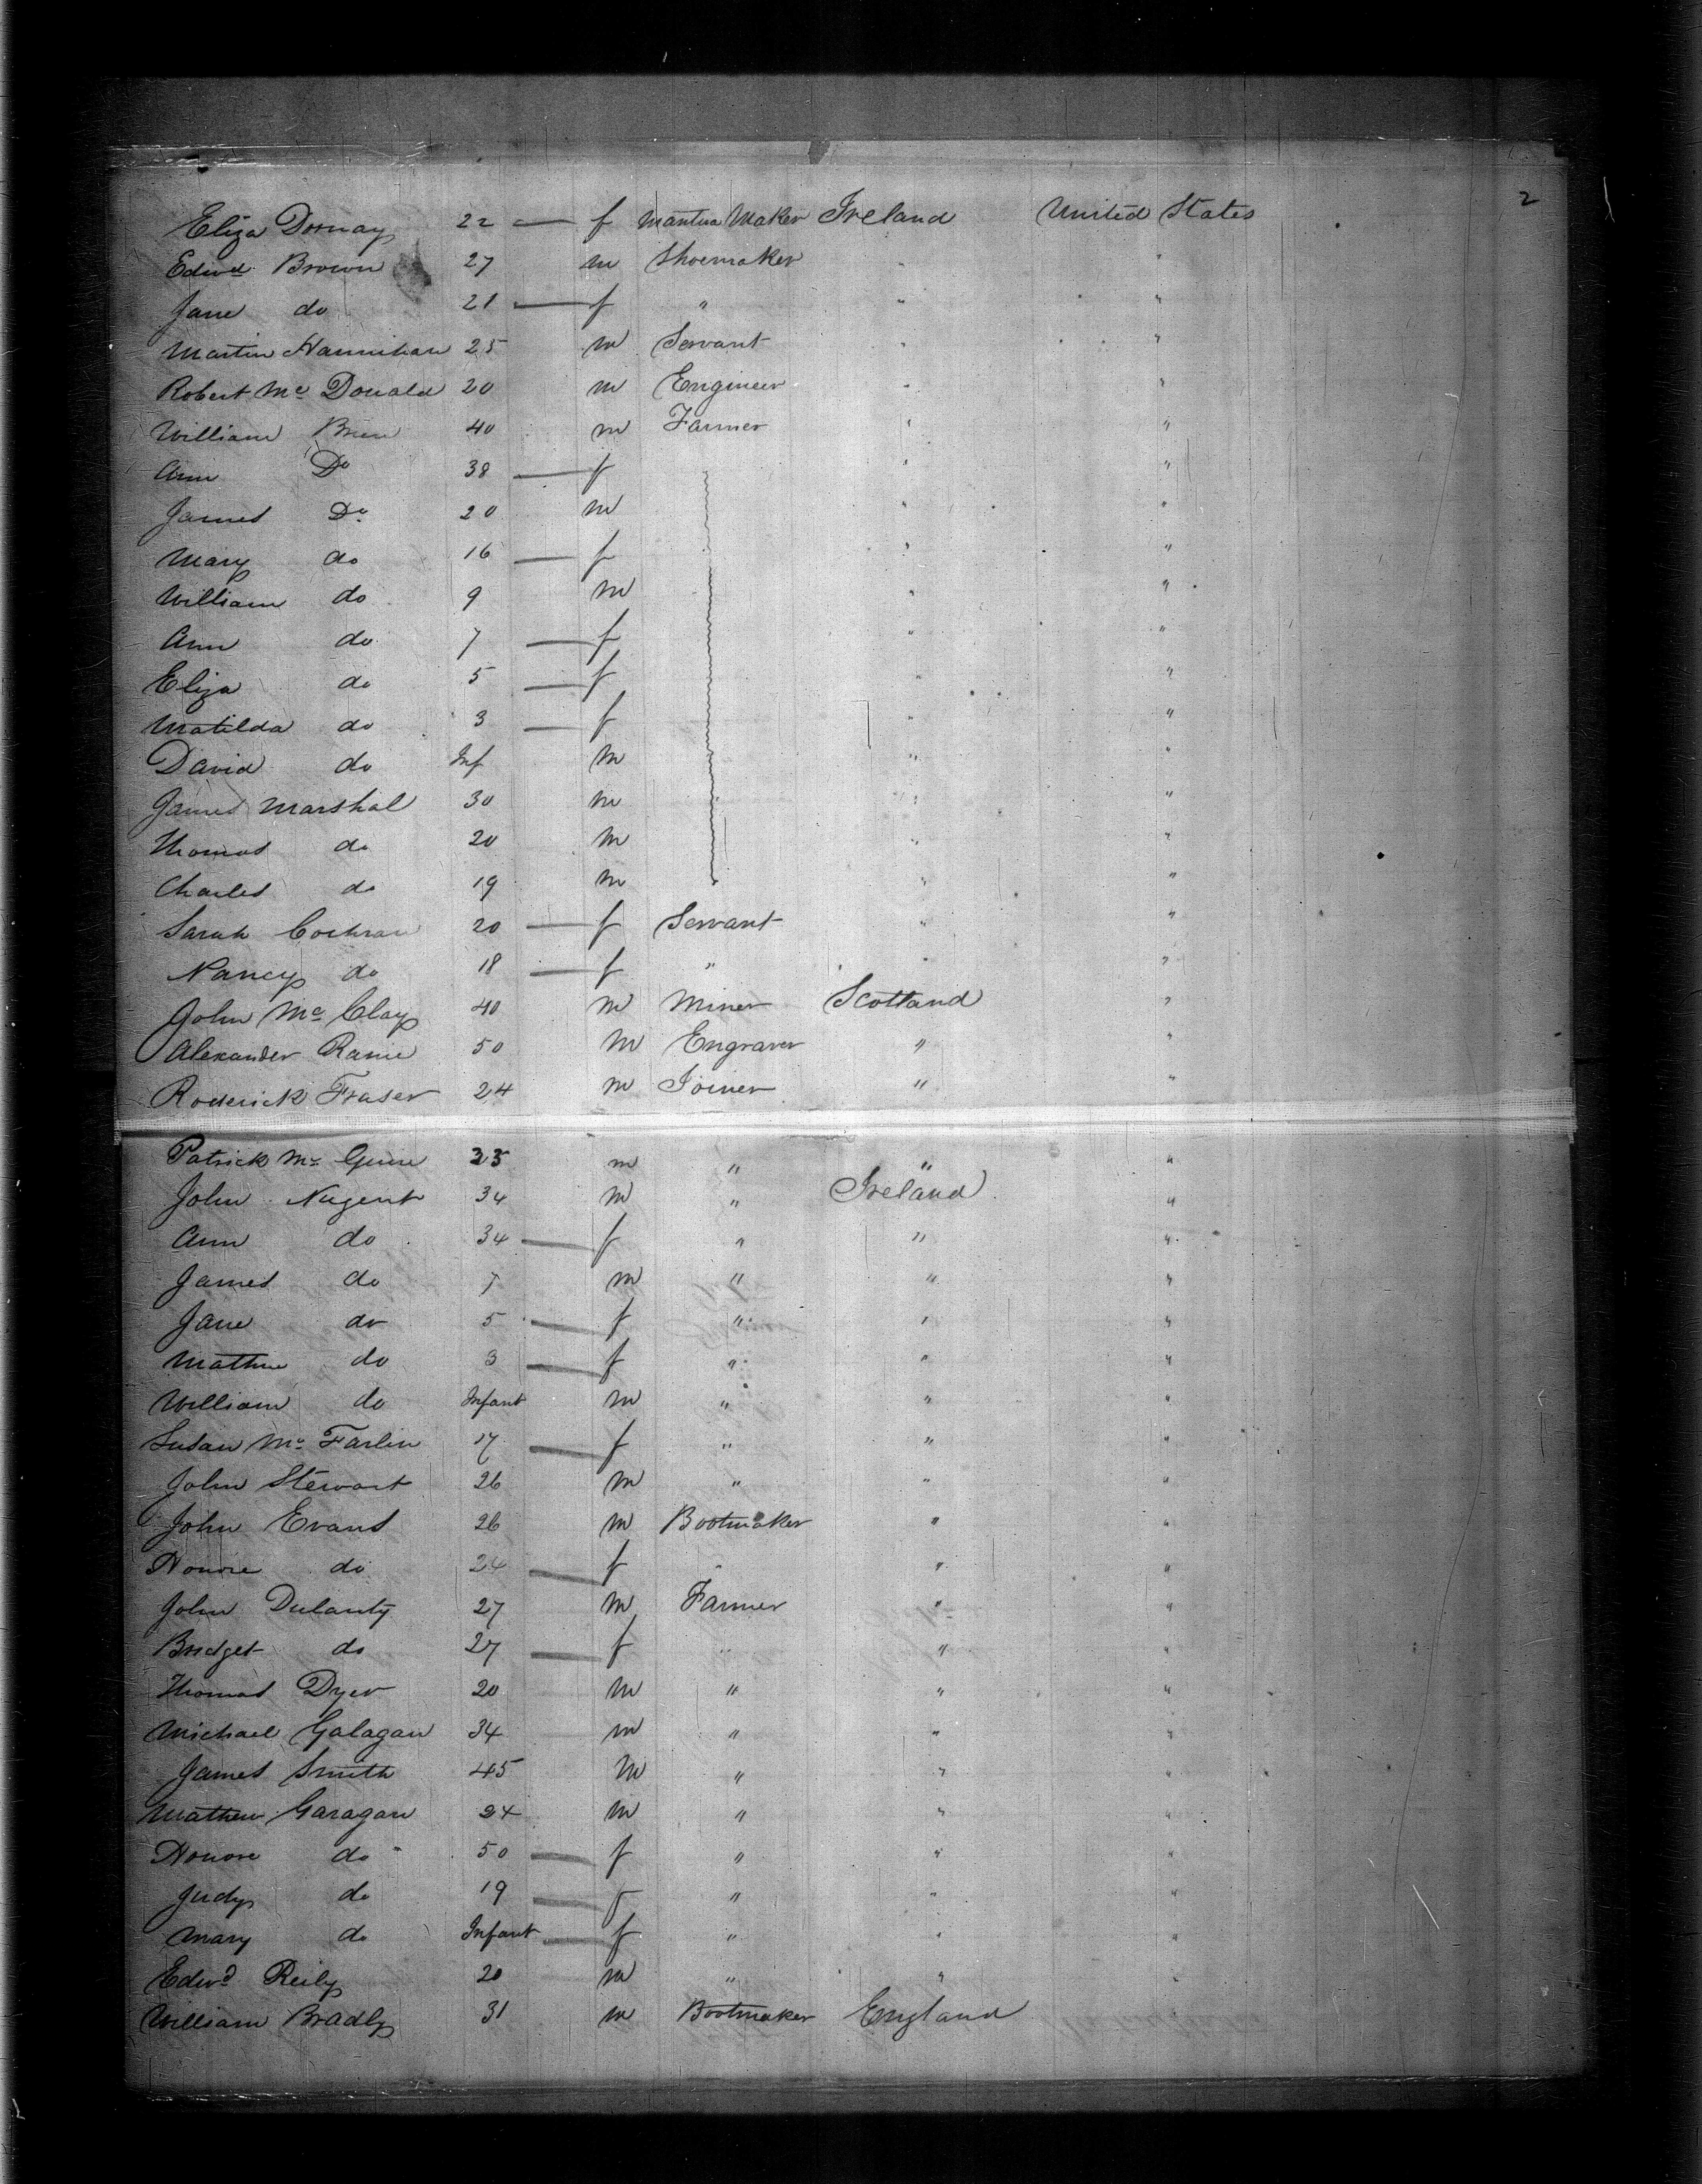 2
Eliza Dornay 22 — f Mantua Maker Ireland United States
Edwd Brown 27 m Shoemaker " "
Jane do 21 — f " " "
Martin Hannihan 25 m Servant " "
Robert Mc Donald 20 m Engineer " "
William 40 m Farmer " "
Ann Do 38 — f " "
James Do 20 m " "
Mary do 16 — f " "
William do 9 m " "
Ann do 7 — f " "
Eliza do 5 — f " "
Matilda do 3 — f " "
David do Inf m " "
James Marshal 30 m " "
Thomas do 20 m " "
Charles do 19 m " "
Sarah Cochran 20 — f Servant " "
Nancy do 18 — f " " "
John Mc Clay 40 m Miner Scotland "
Alexander 50 m Engraver " "
Roderick Fraser 24 m Joiner " "
Patrick Mc 35 m " " "
John Nugent 34 m " Ireland "
Ann do 34 — f " " "
James do 7 m " " "
Jane do 5 — f " " "
Mathew do 3 — f " " "
William do Infant m " " "
Susan Mc Farlin 17 — f " " "
John Stewart 26 m " " "
John Evans 26 m Bootmaker " "
Honore do 24 — f " " "
John Dulanty 27 m Farmer " "
Bridget do 27 — f " " "
Thomas Dyer 20 m " " "
Michael Galagan 34 m " " "
James Smith 45 m " " "
Mathew Garagan 24 m " " "
Honore do 50 — f " " "
Judy do 19 — f " " "
Mary do Infant — f " " "
Edwd Reily 20 m " " "
William Bradly 31 m Bootmaker England